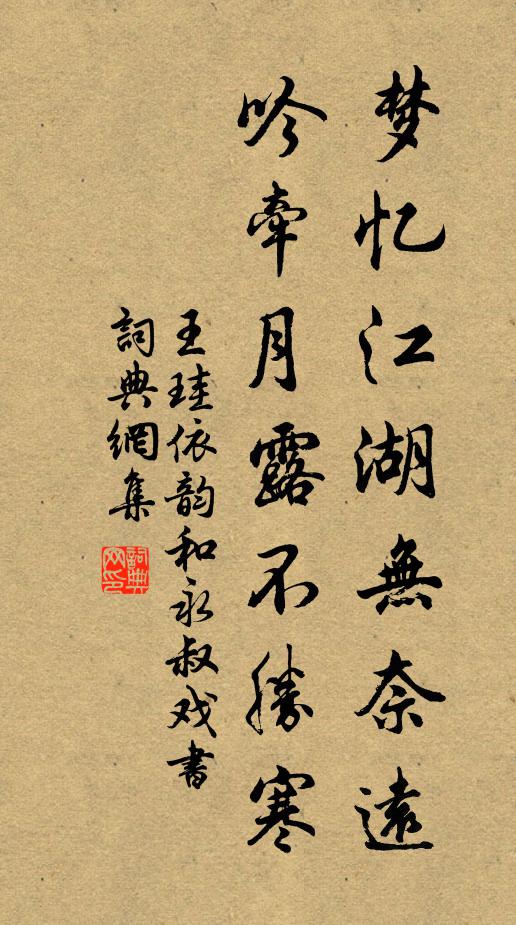 梦忆江湖無奈遠
吟牽月露不勝寒
王珪依韵和永叔戏書
詞典網集
詞典
网印